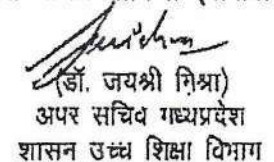 (डॉ. जयश्री मिश्रा)
अपर सचिव मध्यप्रदेश
शासन उच्च शिक्षा विभाग